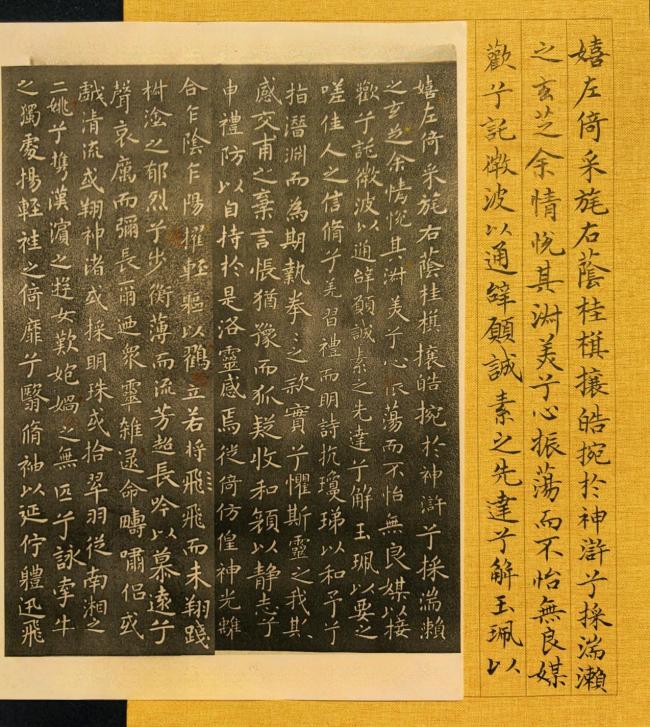 嬉左倚采旄右蔭桂棋攘皓捥於神滸兮採湍瀨
之玄芝余情悅其淋美兮心振蕩而不怡無良媒
歡兮託微波以通辭願誠素之先達兮解玉珮以
嬉左倚采旄右蔭桂棋攘皓捥於神滸兮採湍瀨
之玄芝余情悅其淋美兮心振蕩而不怡無良媒以接
歡兮託微波以通辭願誠素之先達兮解玉珮以要之
嗟佳人之信脩兮羌習禮而明詩抗瓊珶以和予兮
指潛淵而為期執拳〻之款實兮懼斯靈之我欺
感交甫之棄言悵猶豫而狐疑收和顏以靜志兮
申禮防以自持於是洛靈感焉徙倚仿偟神光離
合乍陰乍陽擢輕軀以鶴立若將飛飛而未翔踐
椒塗之郁烈兮步衡薄而流芳超長吟以慕遠兮
聲哀厲而彌長爾迺眾靈雜遝命疇嘯侶或
戲清流或翔神渚或採明珠或拾翠羽從南湘之
二姚兮攜漢濱之遊女歎匏媧之無匹兮詠牽牛
之獨處揚輕袿之倚靡兮翳脩袖以延佇體迅飛